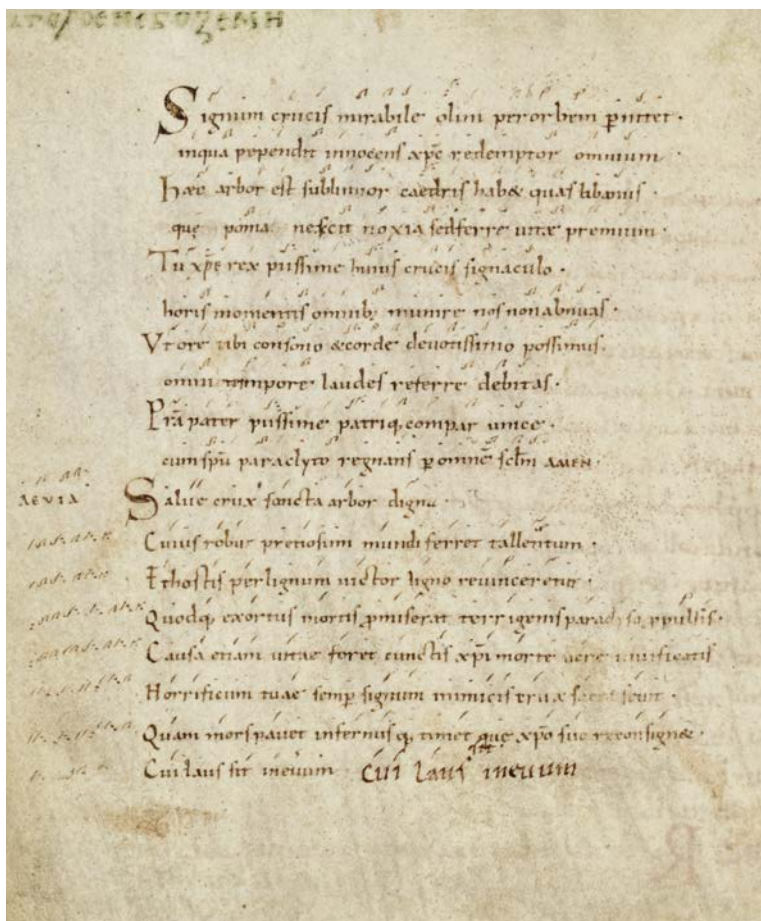 Signum crucis mirabile olim per orbem p̄nitet·
inqua pependit innocens xp̄c redemptor omnium
Haec arbor est sublimior caedris hab& quas libanus·
quę poma nescit noxia sedferre uitæ premium·
Tu xp̄e rex piissime huius crucis signaculo·
horis momentis omnib; munire nos non abnuas·
Vt ore tibi consono &corde deuotissimo possimus·
omni tempore laudes referre debitas·
P̄ra pater piissime patriq; compar unice·
cum sp̄u paraclyto regnans p̄ omnē sclm̄ AMEN·
AEVIA Salue crux sancta arbor digna·
Cuius robur pretiosum mundi ferret tallentum·
Ethostis perlignum uictor ligno reuinceretur·
Quodq; exortus mortis p̄miserat terrigenis paradyso
Causa etiam uitae foret cunctis xp̄i morte uiuificatis
Horrificum tuae semp̄ signum inimicis
Quam mors pauet infernus q; timet quę xp̄o suo reconsign&·
Cui laus sit ineuum Cui laus sit ineuum